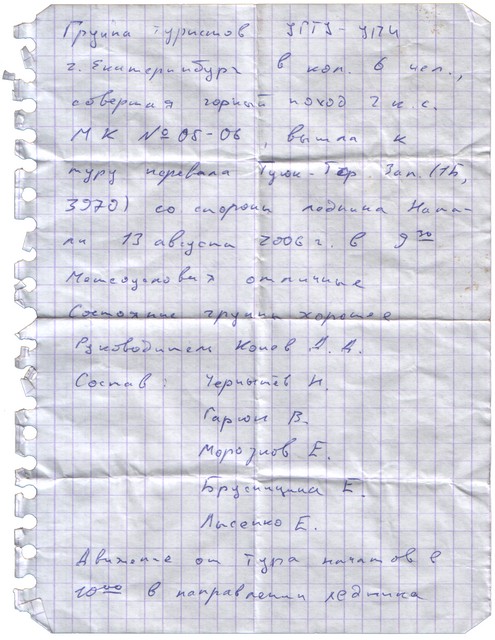 Группа туристов УГТУ-УПИ
г. Екатеринбург в кол. 6 чел.,
совершая горный поход 2 к.с.
МК № 05-06, вышла к
туру перевала Гуюк-Гер. Зап. (1Б,
3970) со стороны ледника
13 августа 2006 г. в 9 30
Метеоусловия отличные
Состояние группы хорошее
Руководитель Копов Д. А.
Состав: Чернышев Н.
Гарюк В.
Морозков Е.
Брусницина Е.
Лысенко Е.
Движение от тура начато в
10 00 в направлении ледника